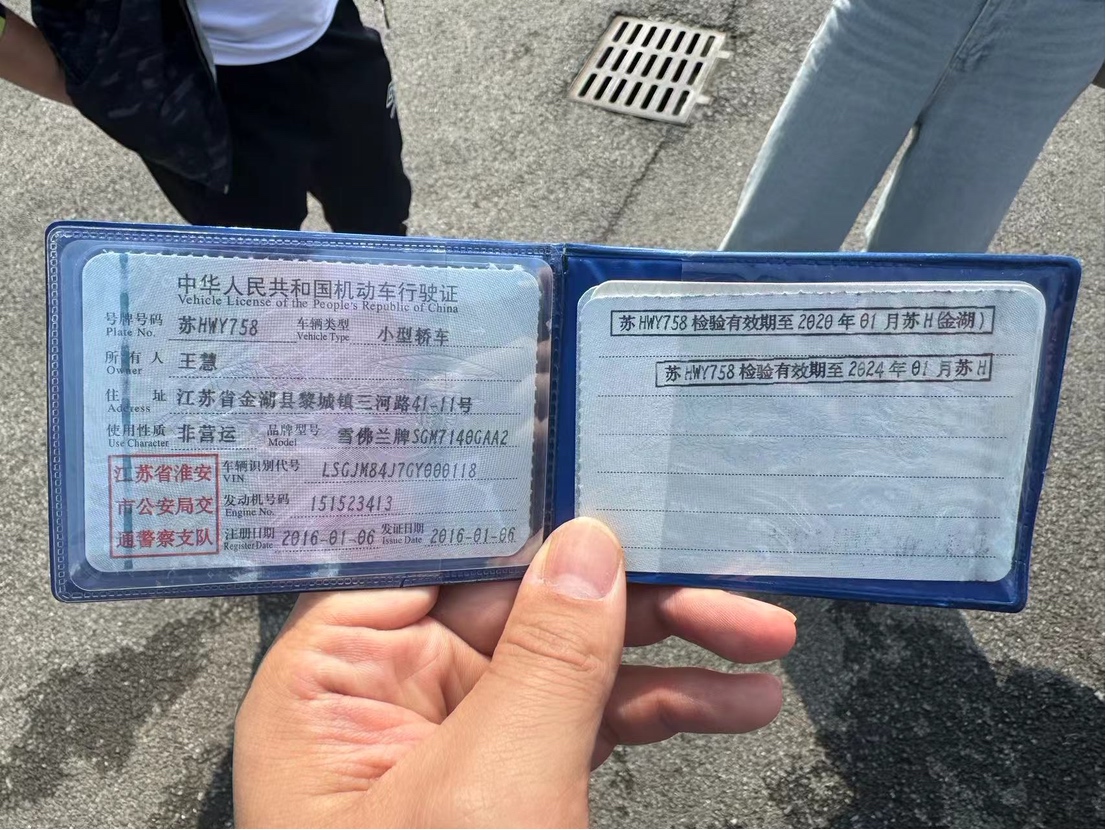 中华人民共和国机动车行驶证
Vehicle License of the People's Republic of China
号牌号码 苏HWY758 车辆类型 小型轿车
Plate No. Vehicle Type
所有人 王慧
Owner
住址 江苏省金湖县黎城镇三河路41-11号
Address
使用性质 非营运 品牌型号 雪佛兰牌SGM7140GAA2
Use Character Model
江苏省淮安
市公安局交
通警察支队
车辆识别代号 LSGJM84J7GY000118
VIN
发动机号码 151523413
Engine No.
注册日期 2016-01-06 发证日期 2016-01-06
Register Date Issue Date
苏HWY758 检验有效期至 2020 年 01 月苏H(金湖)
苏HWY758 检验有效期至 2024 年 01 月苏H